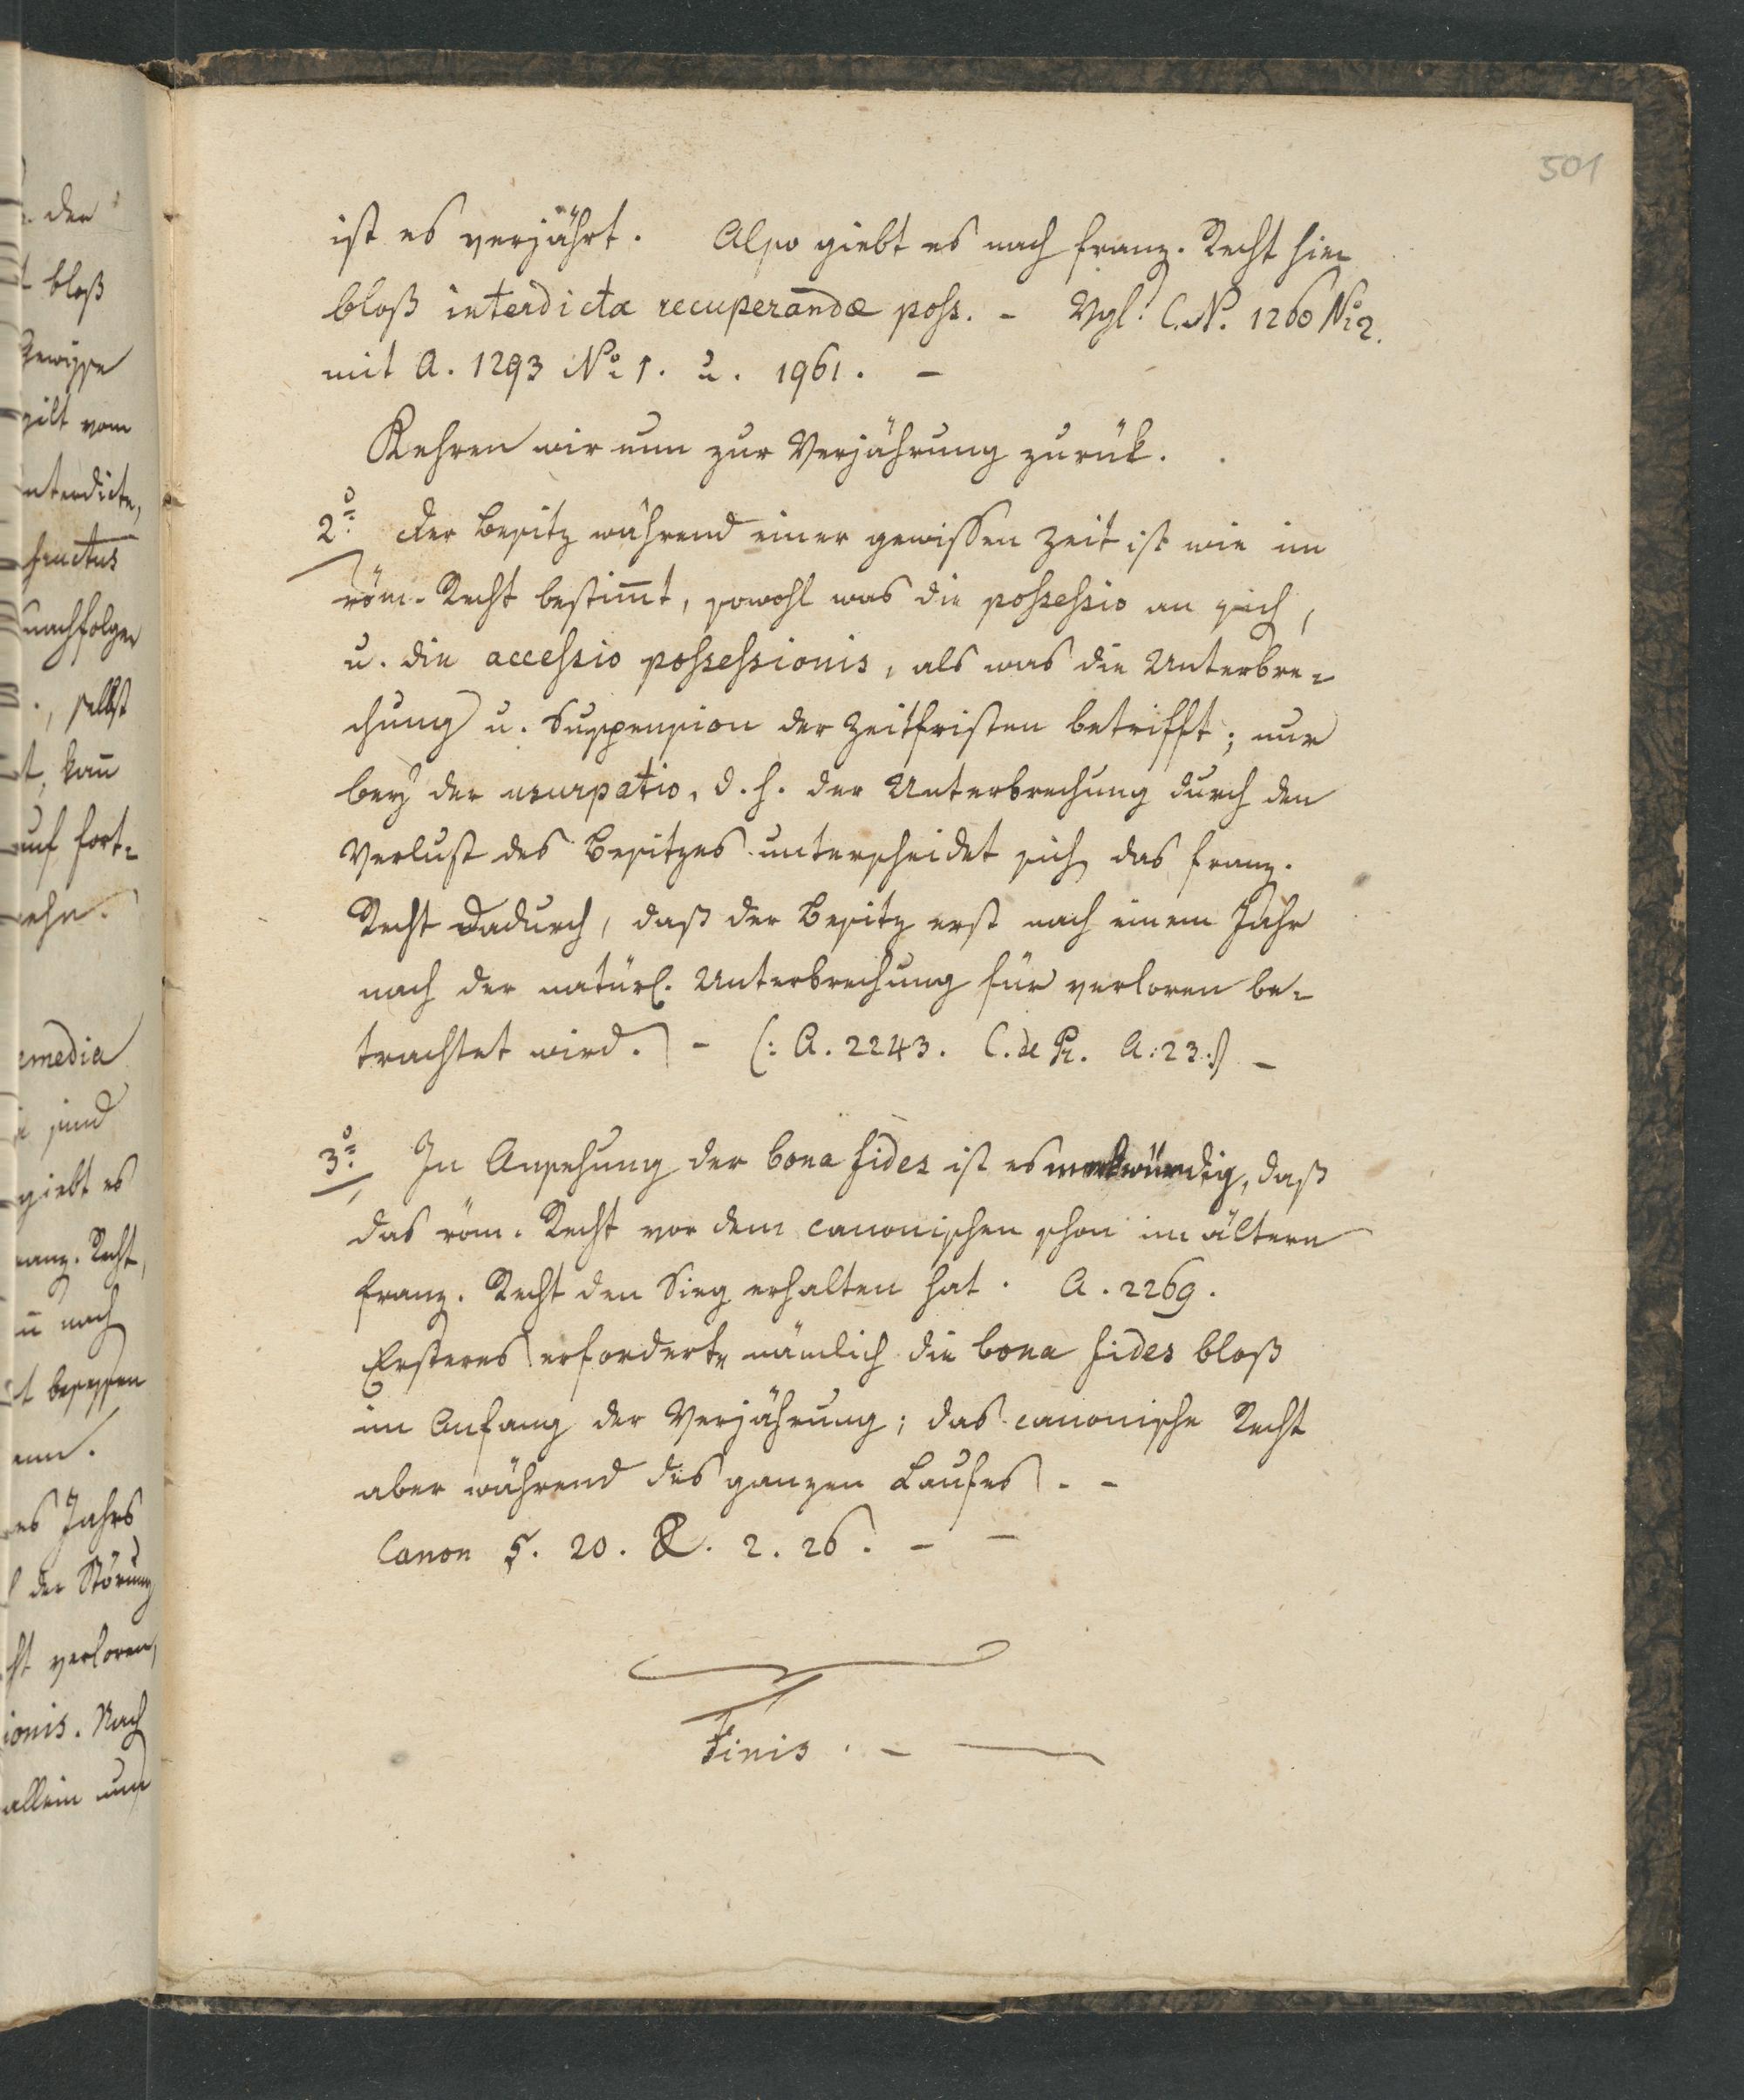 501
ist es verjährt. Also giebt es nach franz. Recht hier
bloß interdicta recuperandæ poss. - Vgl. C. N. 1260 No 2.
mit A. 1293 No 1. u. 1961. -
Kehren wir nun zur Verjährung zurük.
2o. Der Besitz während einer gewissen Zeit ist wie im
röm. Recht bestim̄t, sowohl was die possessio an sich,
u. die accessio possessionis, als was die Unterbre-
chung u. Suspension der Zeitfristen betrifft; nur
bey der usurpatio, d. h. der Unterbrechung durch den
Verlust des Besitzes unterscheidet sich das franz.
Recht dadurch, daß der Besitz erst nach einem Jahr
nach der natürl. Unterbrechung für verloren be-
trachtet wird. - (: A. 2243. C. de Pr. A. 23 :) -
3o. In Ansehung der bona fides ist es merkwürdig, daß
das röm. Recht vor dem canonischen schon im ältern
franz. Recht den Sieg erhalten hat. A. 2269.
Ersteres erforderte nämlich die bona fides bloß
im Anfang der Verjährung; das canonische Recht
aber während des ganzen Laufes. -
Canon 5. 20. X. 2. 26. - -
Finis. - -
der
bloß
Gewisse
gilt vom
nterdicte,
fructus
nachfolger
., selbst
t, kan̄
auf fort-
ehn.
emedia
sind
giebt es
ranz. Recht,
n̄ nach
t besessen
enn.
es Jahrs
der Störung
ht verloren,
ionis. Nach
allein nun